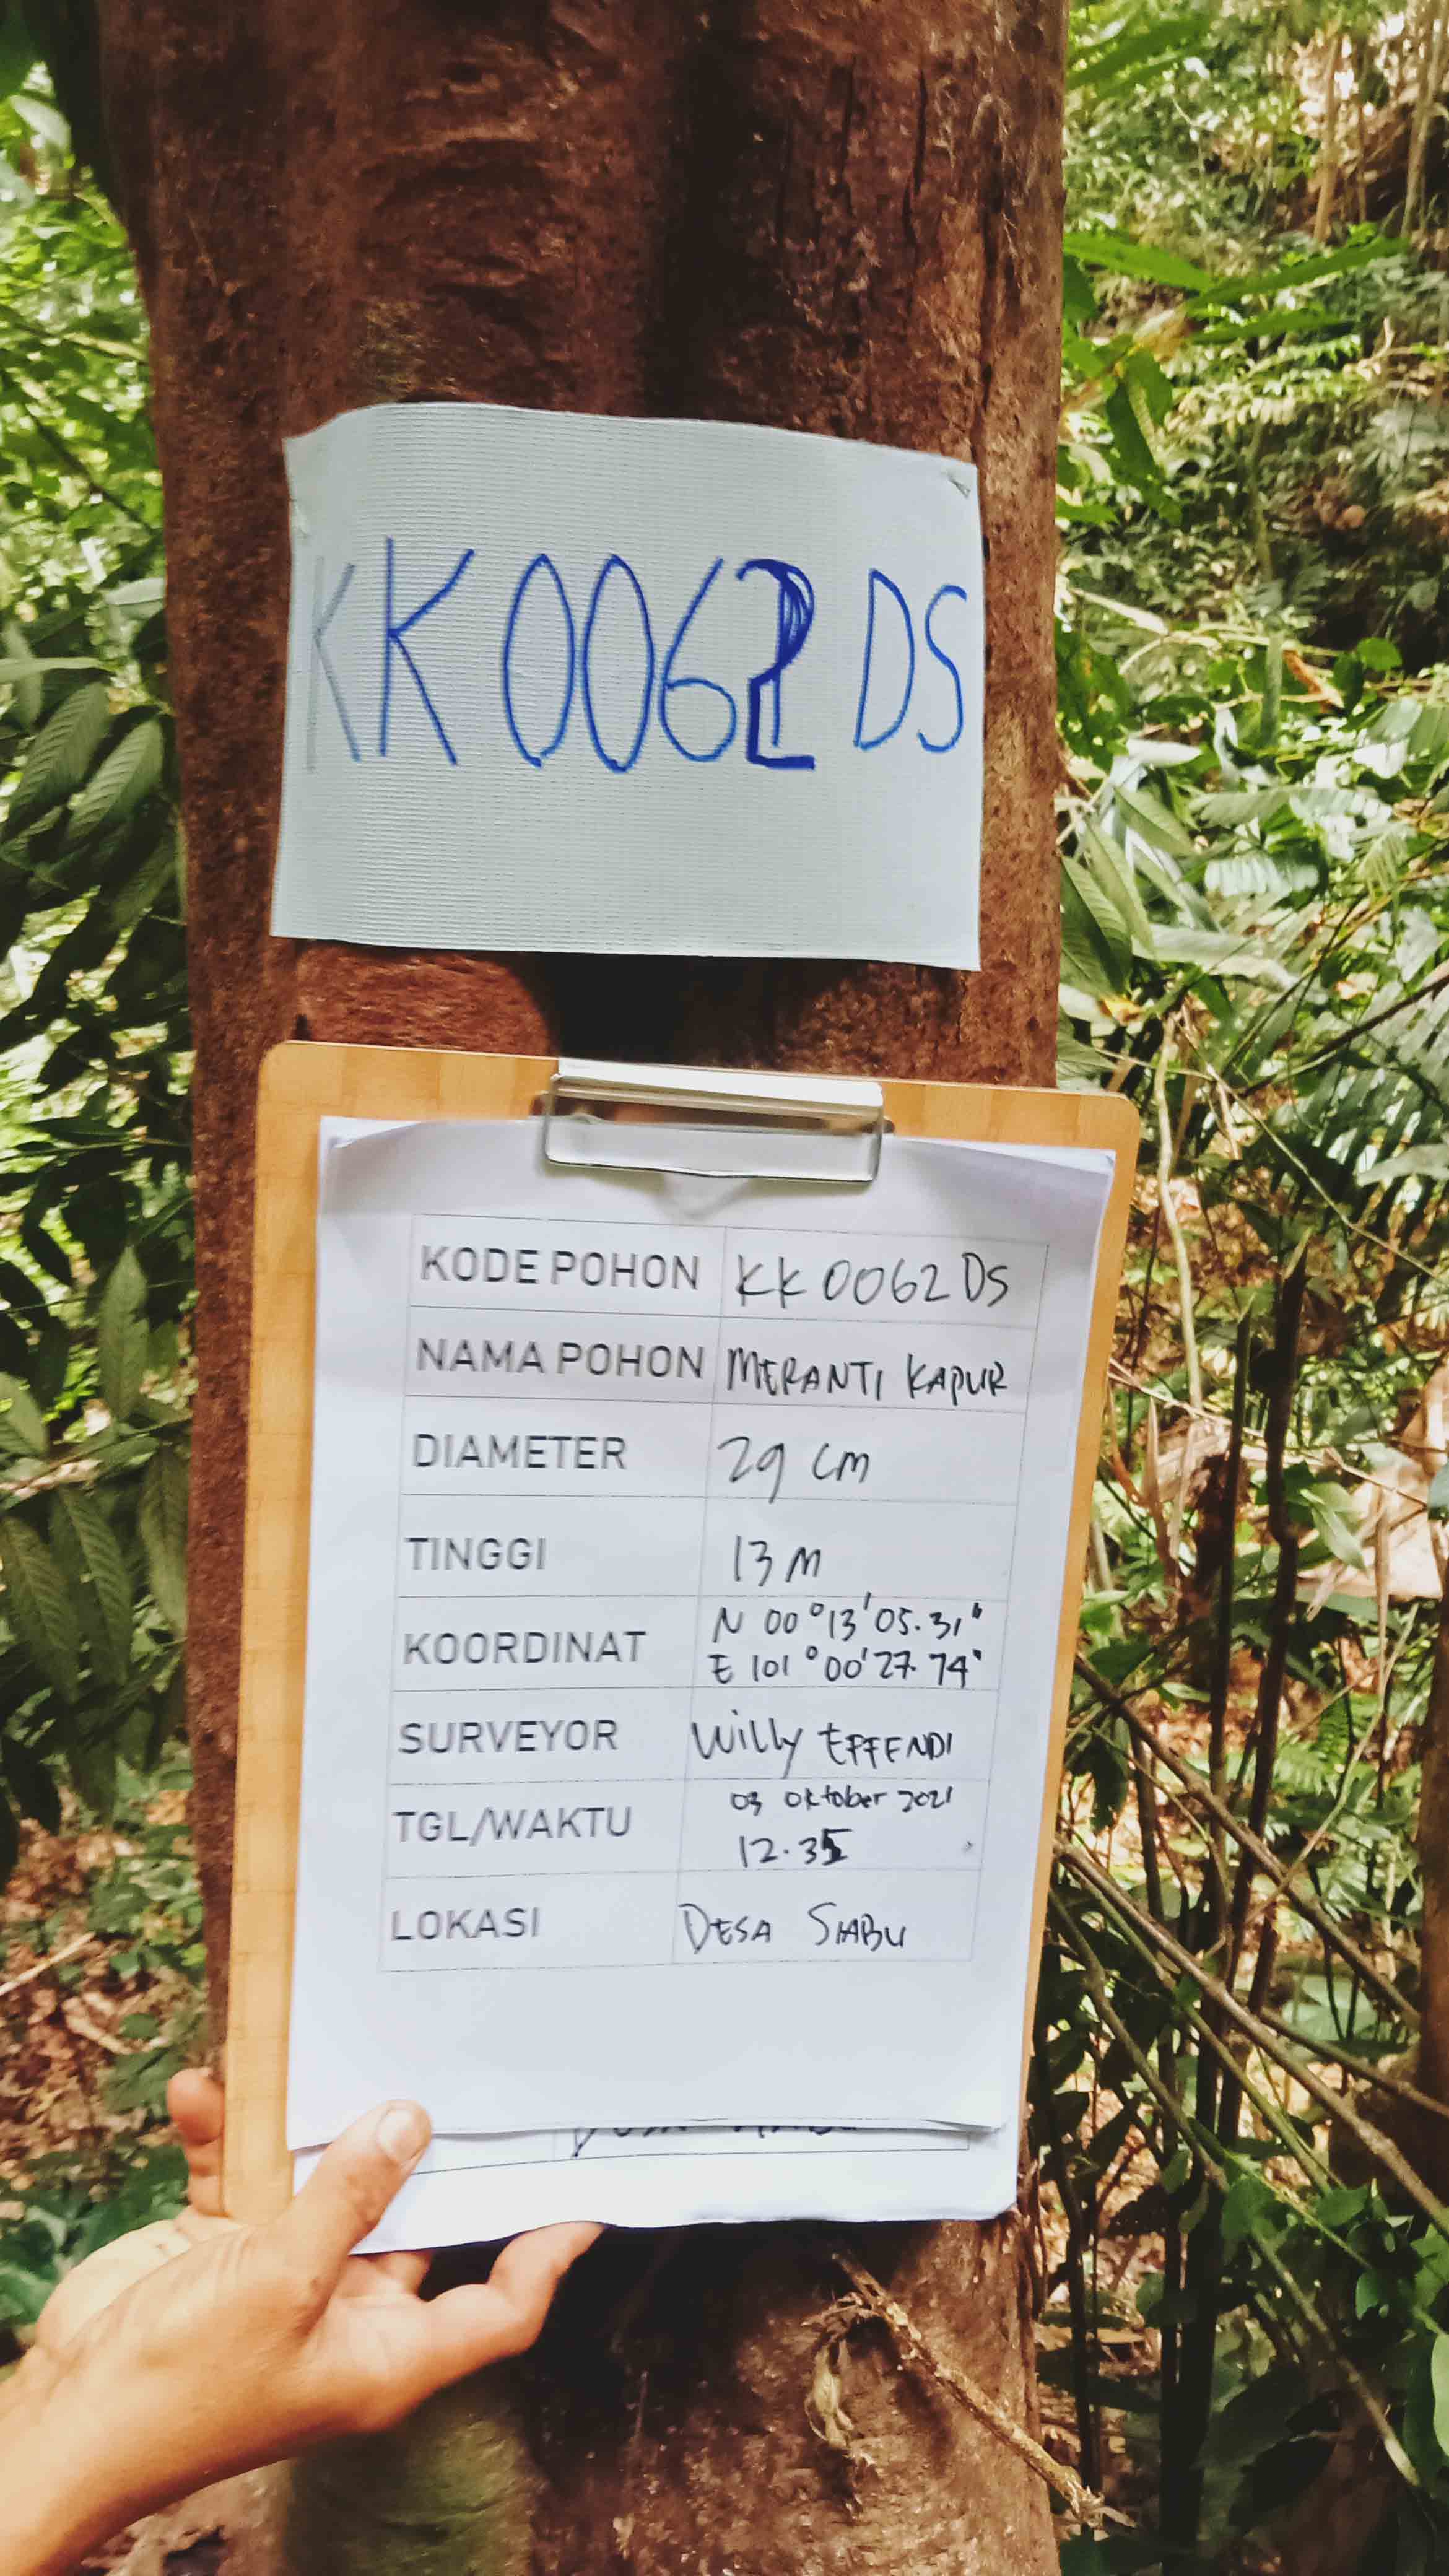 KK 0062 DS
KODE POHON KK 0062 DS
NAMA POHON MERANTI KAPUR
DIAMETER 29 cm
TINGGI 13 M
KOORDINAT N 00°13'05.31"
E 101°00'27.74"
SURVEYOR Willy EFFENDI
TGL/WAKTU 03 Oktober 2021
12.35
LOKASI DESA SIABU